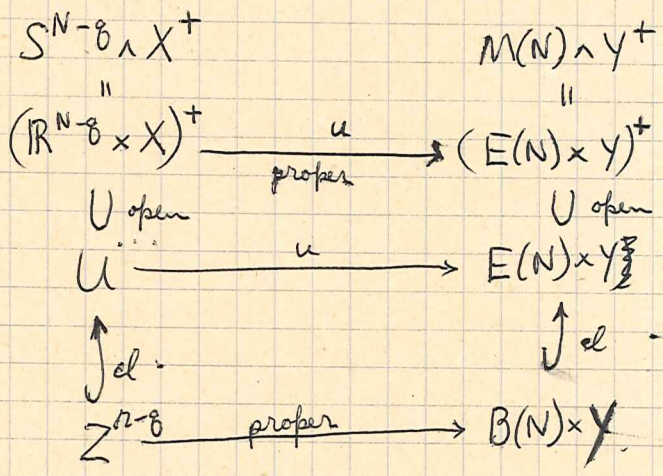 S^{N-q} ∧ X^+ M(N) ∧ Y^+
= =
(ℝ^{N-q} × X)^+ u proper (E(N) × Y)^+
∪ open ∪ open
U u E(N) × Y
cl. cl.
Z^{n-q} proper B(N) × Y